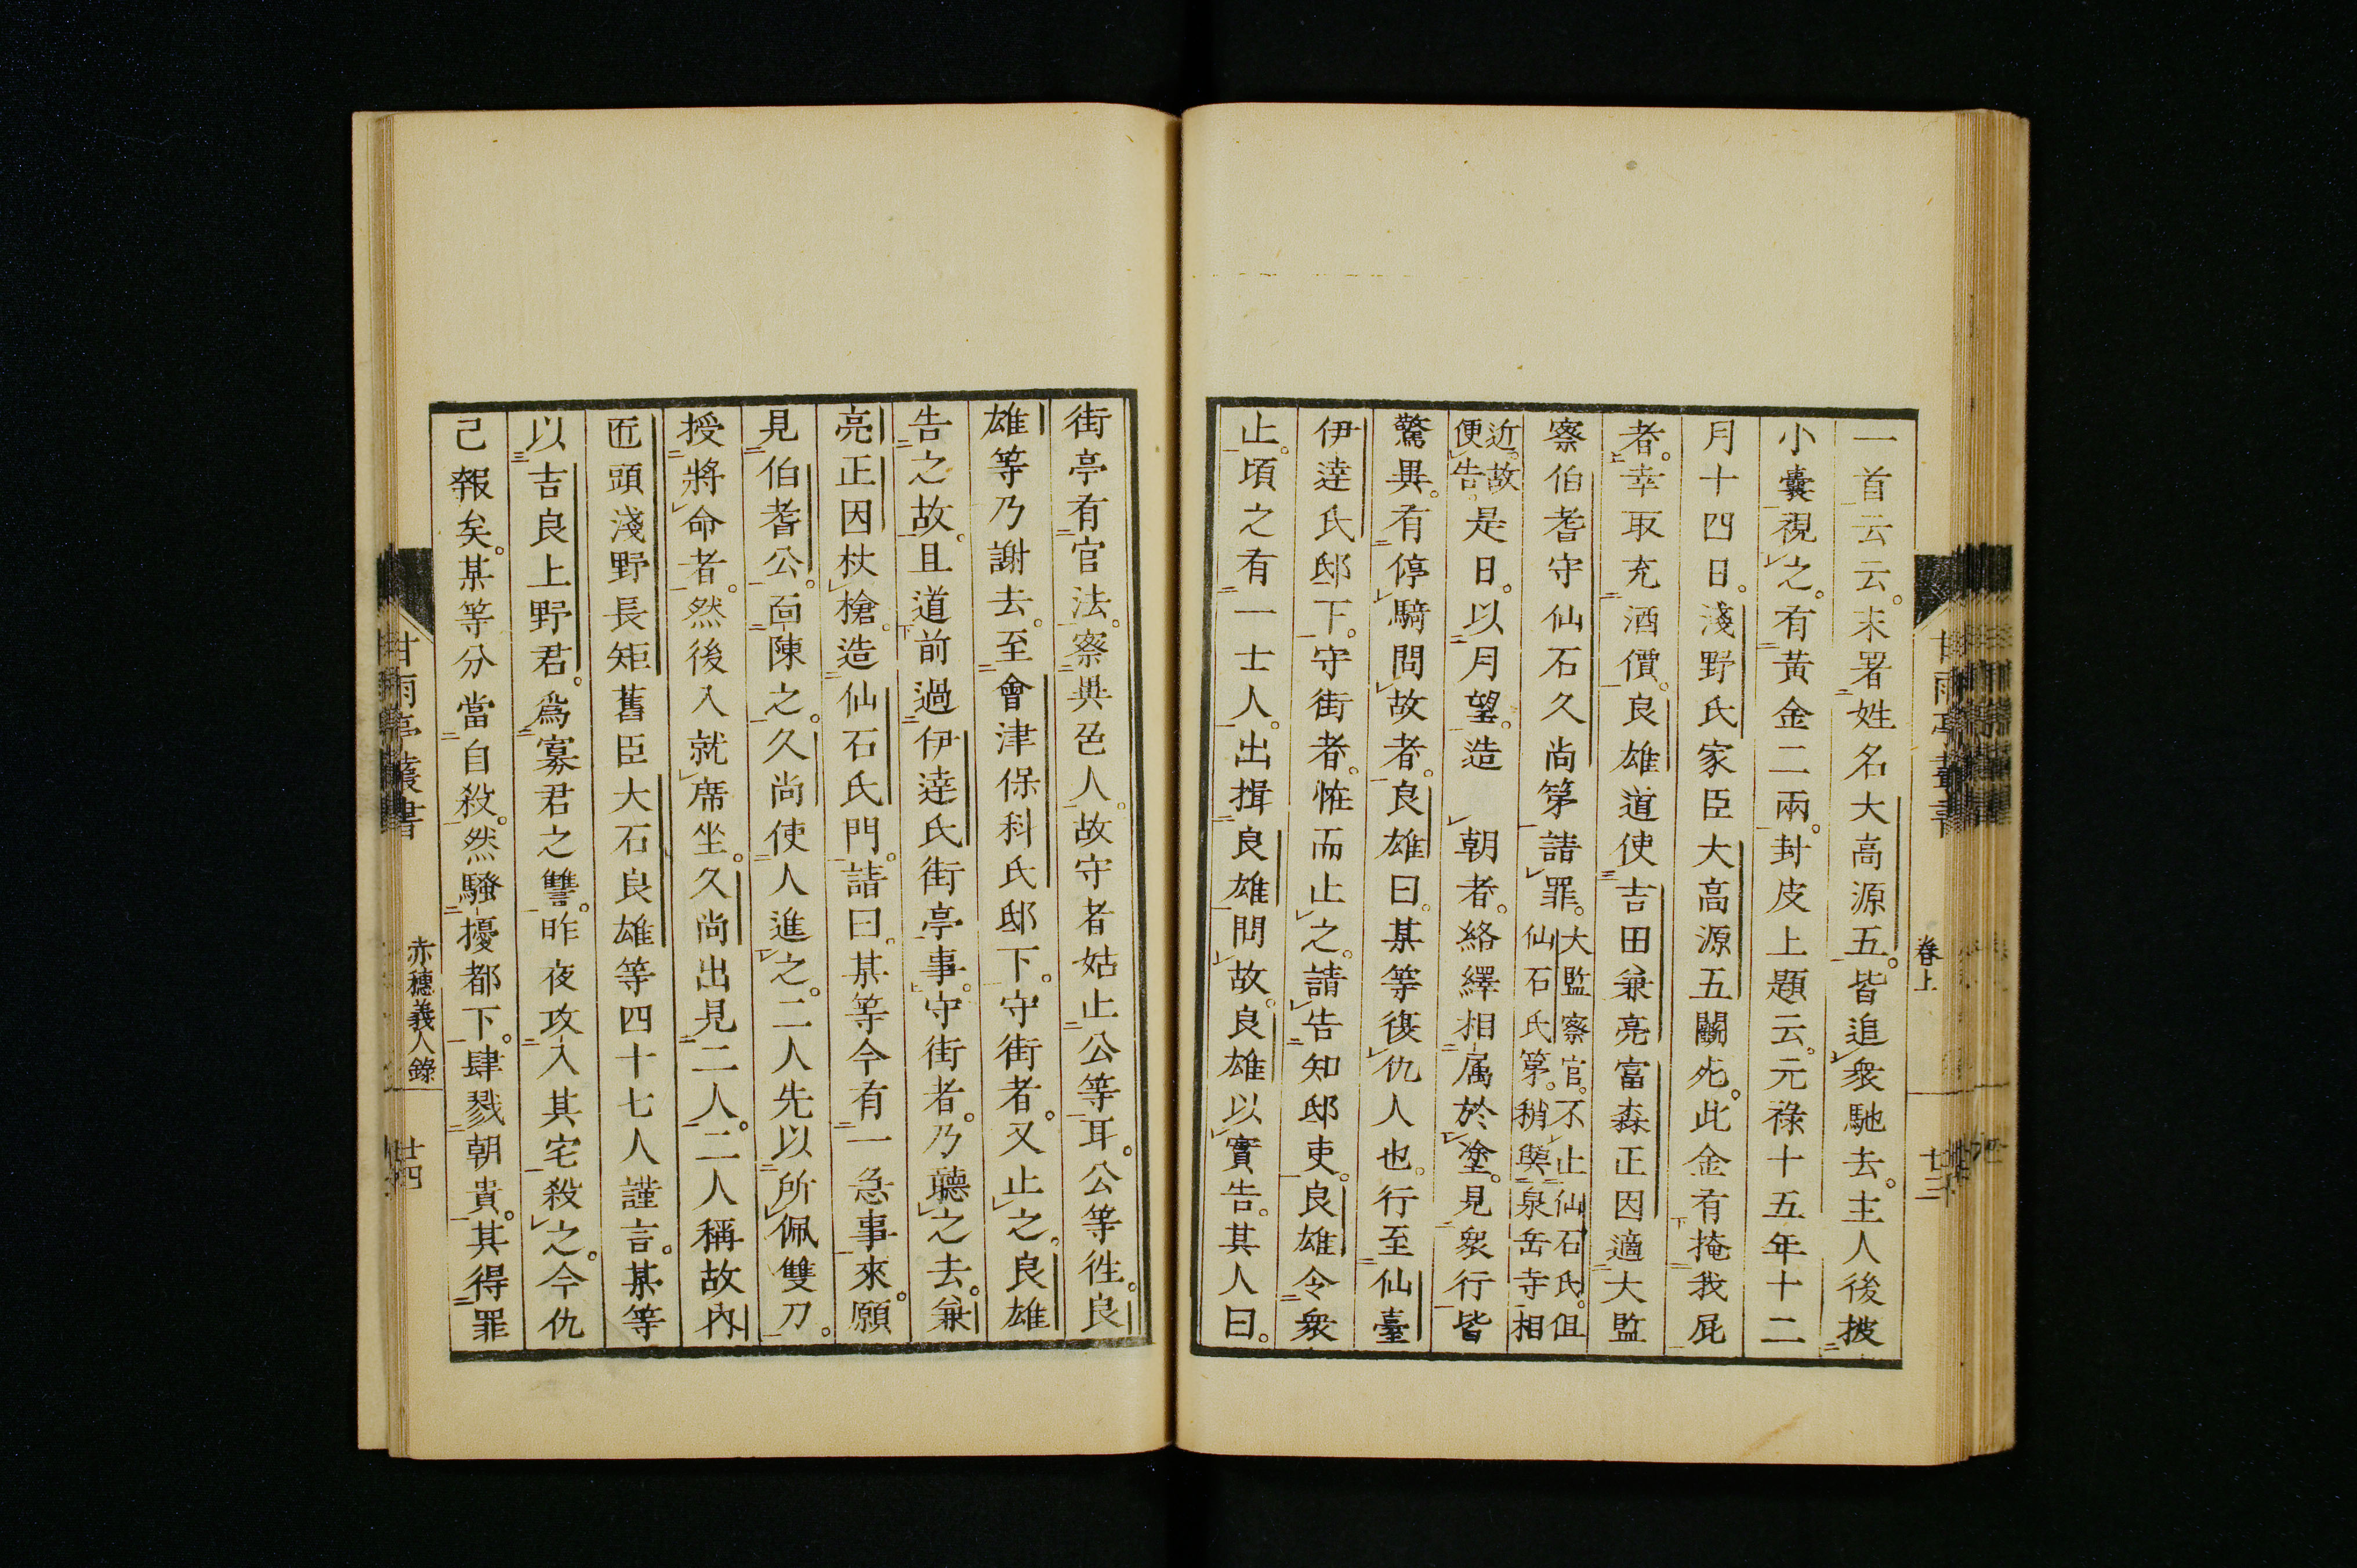 一首云云。末署姓名大高源五。皆追衆馳去。主人後披
小囊視之。有黃金二兩。封皮上題云。元祿十五年十二
月十四日。淺野氏家臣大高源五鬭死。此金有掩我屍
者。幸取充酒價。良雄道使吉田兼亮富森正因適大監
察伯耆守仙石久尚第請罪。大監察官。不止仙石氏。但仙石氏第。稍與泉岳寺相
近。故便告。是日。以月望。造　朝者。絡繹相属於塗。見衆行皆
驚異。有停騎問故者。良雄曰。某等復仇人也。行至仙臺
伊達氏邸下。守街者。恠而止之。請告知邸吏。良雄令衆
止。頃之有一士人。出揖良雄問故。良雄以實告。其人曰。
甘雨亭叢書
卷上
廿三
街亭有官法。察異色人。故守者姑止公等耳。公等徃。良
雄等乃謝去。至會津保科氏邸下。守街者。又止之。良雄
告之故。且道前過伊達氏街亭事。守街者。乃聽之去。兼
亮正因杖槍。造仙石氏門。請曰。某等今有一急事來。願
見伯耆公。面陳之。久尚使人進之。二人先以所佩雙刀。
授將命者。然後入就席坐。久尚出見二人。二人稱故內
匠頭淺野長矩舊臣大石良雄等四十七人謹言。某等
以吉良上野君。爲寡君之讐。昨夜攻入其宅殺之。今仇
已報矣。某等分當自殺。然騷擾都下。肆戮朝貴。其得罪
甘雨亭叢書
赤穗義人錄
廿四